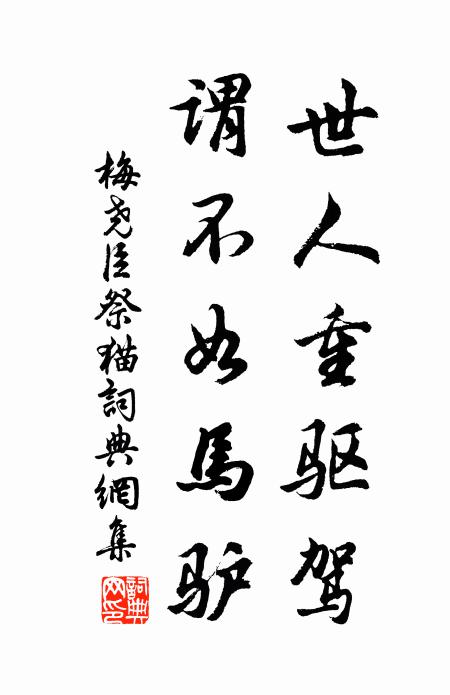 世人重驱驾
谓不如馬驴
梅尧臣祭猫詞典網集
詞典网印